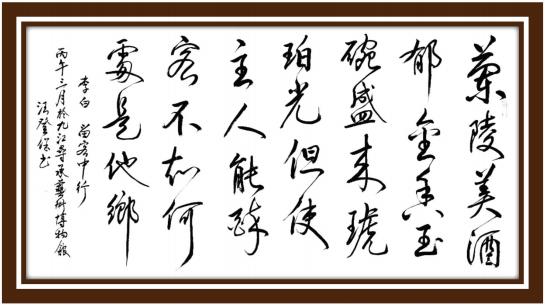 蘭陵美酒
郁金香玉
碗盛来琥
珀光但使
主人能醉
客不知何
處是他鄉
李白 客中行
丙午三月於九江藝術博物館
书